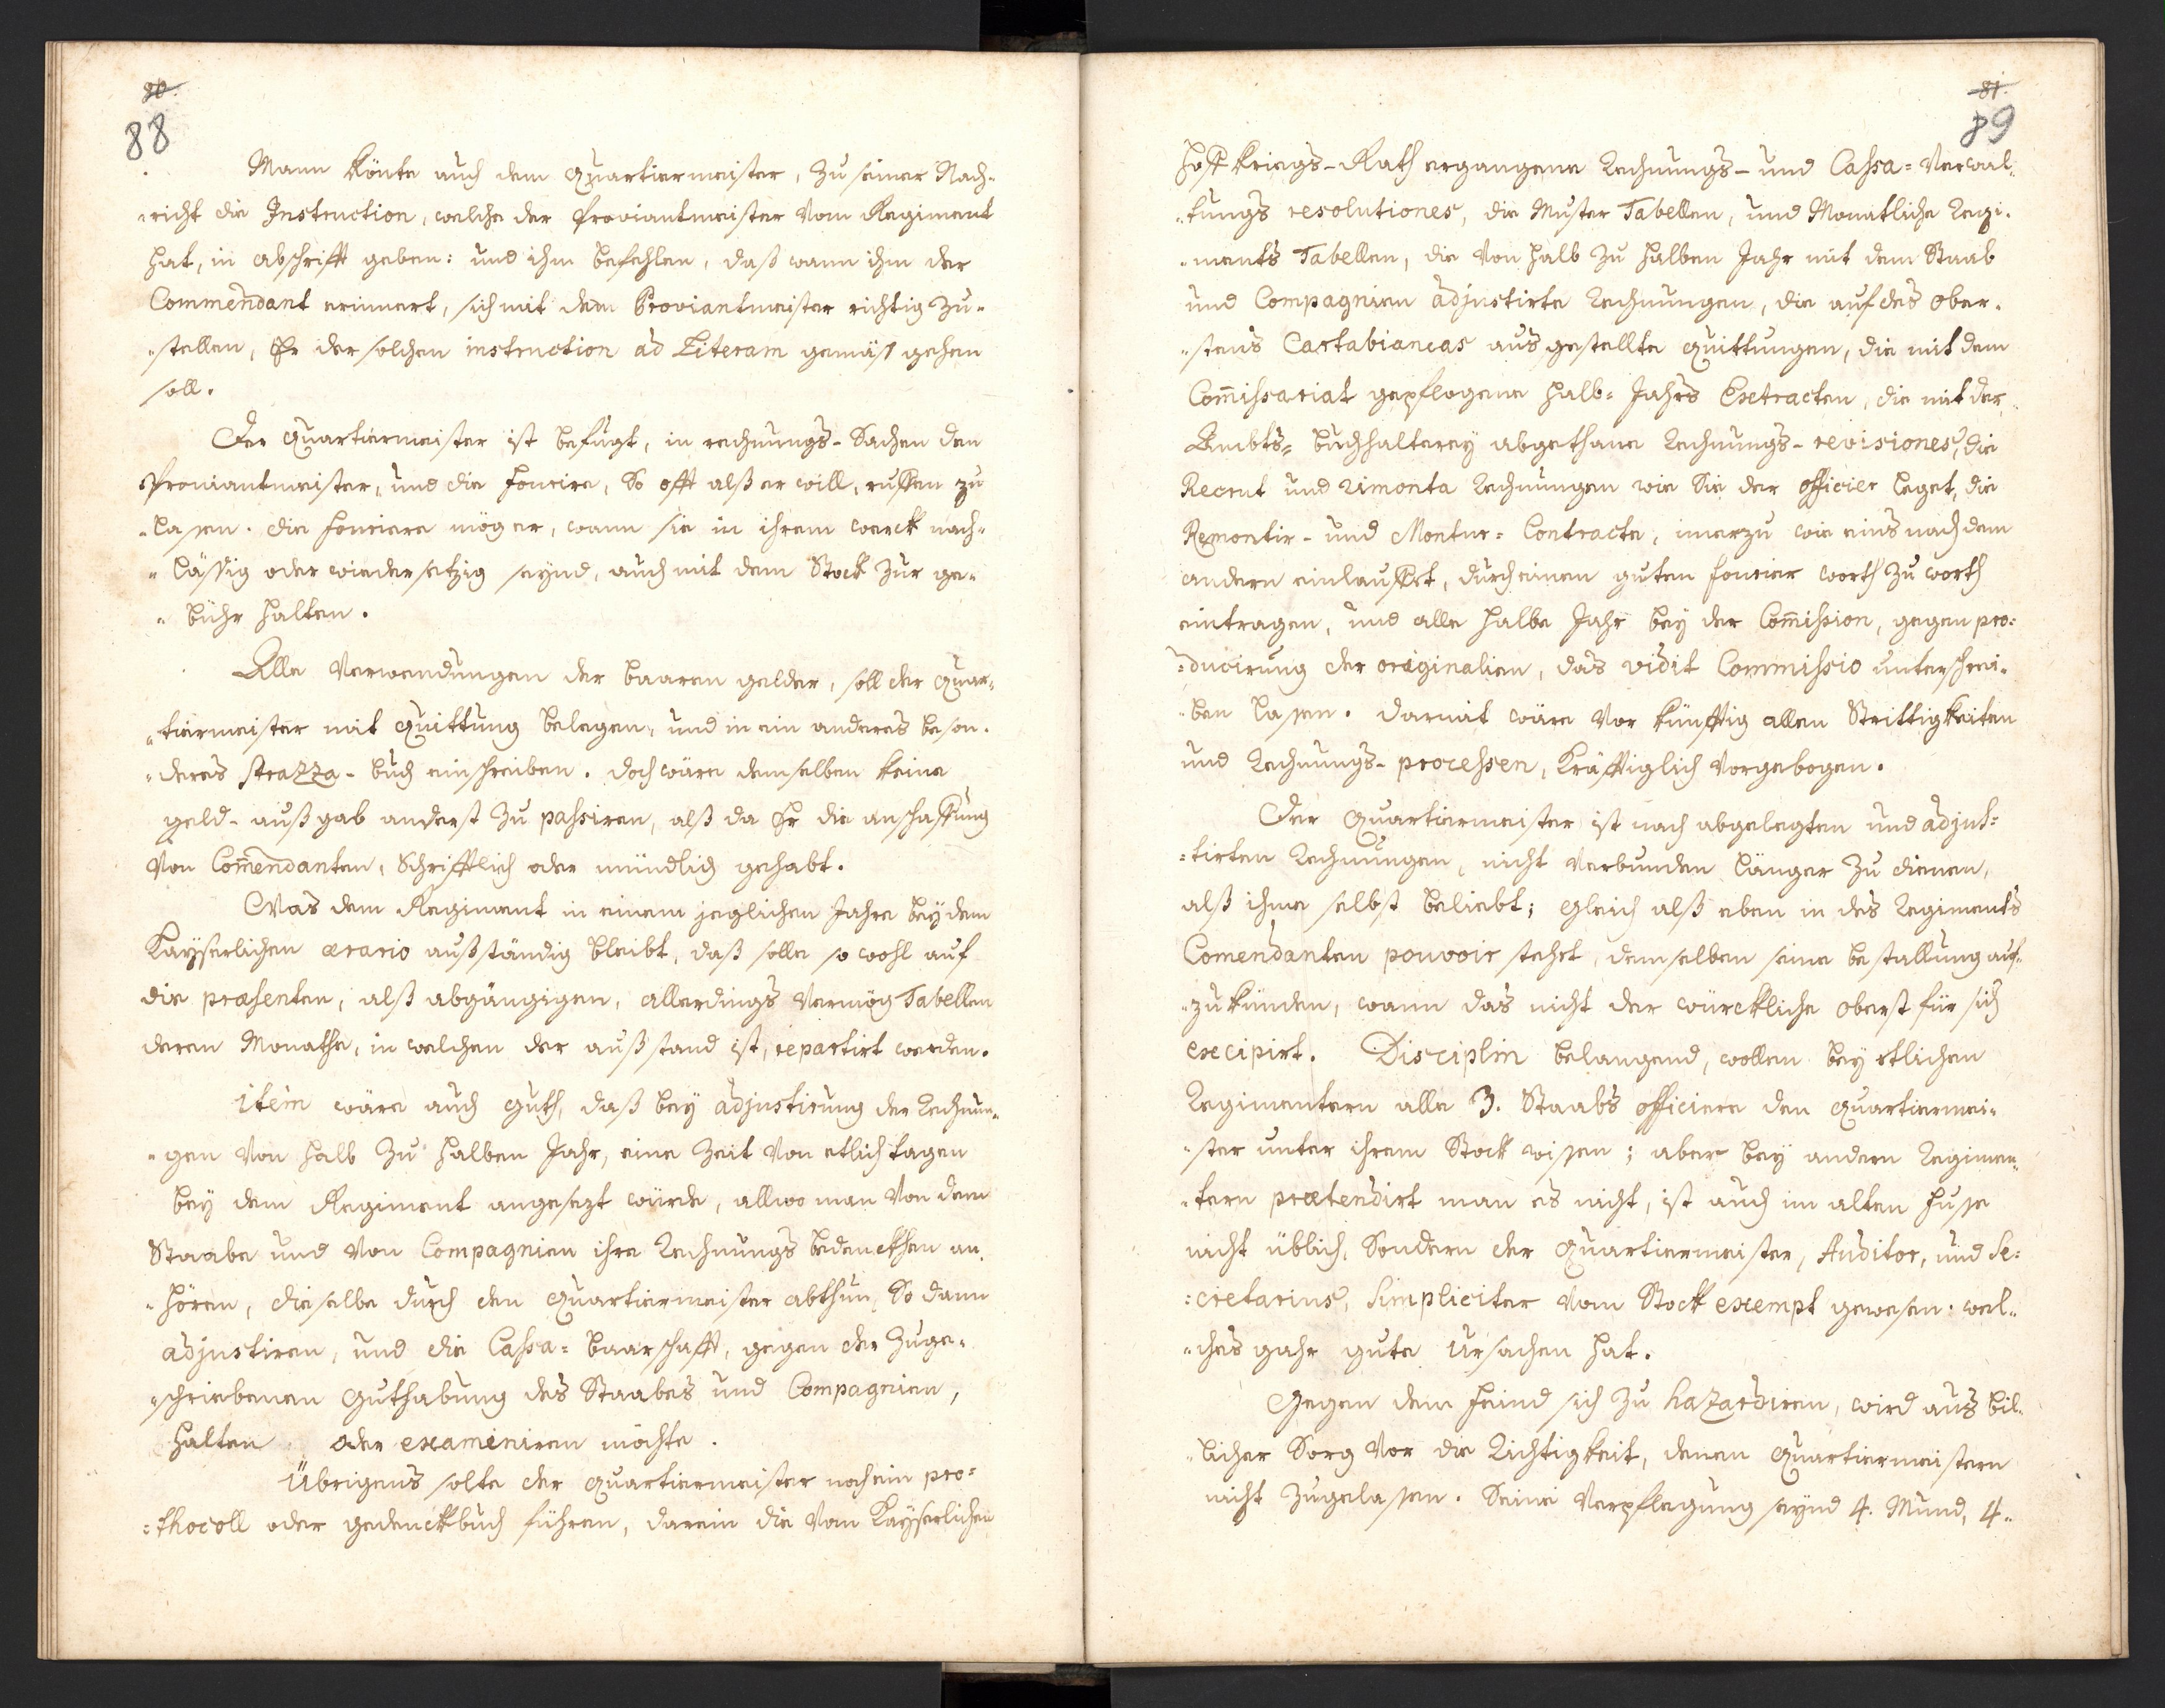 80.
88
Mann könte auch dem Quartiermeister, zu seiner Nach-
-richt die Instruction, welche der Proviantmeister vom Regiment
hat, in abschrifft geben: und ihm befehlen, daß wann ihn der
Commendant erinnert, sich mit dem Proviantmeister richtig zu-
-stellen, Er der solchen instruction ad Literam gemäß gehen
soll.
Der Quartiermeister ist befugt, in rechnungs-Sachen den
Proviantmeister, und die fourire, So offt alß er will, ruffen zu
-lassen. die fouriere mög er, wann sie in ihrem werck nach-
-lässig oder wiedersetzig seynd, auch mit dem Stock zur ge-
-bühr halten.
Alle Verwendungen der baaren gelder, soll der Quar-
-tiermeister mit Quittung belegen, und in ein anderes beson-
-deres strazza-buch einschreiben. doch wäre demselben keine
geld-außgab anderst zu passiren, alß da Er die anschaffung
von Com̅endanten, Schrifftlich oder mündlich gehabt.
Was dem Regiment in einem jeglichen Jahre bey dem
Kayserlichen ærario außständig bleibt, daß solle so wohl auf
die præsenten, alß abgängigen, allerdings vermög Tabellen
deren Monathe, in welchen der außstand ist, repartirt werden.
item wäre auch guth, daß bey adjustirung der Rechnun-
-gen von halb zu halben Jahr, eine Zeit von etlich tagen
bey dem Regiment angesezt würde, allwo man von dem
Staabe und von Compagnien ihre Rechnungs bedenckhen an-
-hören, dieselbe durch den Quartiermeister abthun, So dann
adjustiren, und die Cassa=baarschafft, gegen der zuge-
-schriebenen Guthabung des Staabes und Compagnien,
halten oder examiniren möchte.
Übrigens solte der Quartiermeister noch ein pro=
=thocoll oder gedenckbuch führen, darein die vom Kayserlichen
81.
89
Hoff kriegs-Rath ergangene Rechnungs- und Cassa=Verwal-
-tungs resolutiones, die Muster Tabellen, und Monatliche Regi-
-ments Tabellen, die von halb zu halben Jahr mit dem Staab
und Compagnien adjustirte Rechnungen, die auf des Ober-
-stens Cartabiancas ausgestellte Quittungen, die mit dem
Com̅issariat gepflogene halb=Jahrs Extracten, die mit der
Ambts=buchhalterey abgethane Rechnungs-revisiones, die
Recrut und rimonta Rechnungen wie Sie der officier leget, die
Remontir- und Montur=Contracte, imerzu wie eins nach dem
andern einlauffet, durch einen guten fourier worth zu worth
eintragen, und alle halbe Jahr bey der Com̅ission, gegen pro=
=ducirung der originalien, das vidit Commissio unterschrei-
-ben lassen. darmit wäre vor künfftig allen Strittigkeiten
und Rechnungs-processen, Kräfftiglich vorgebogen.
Der Quartiermeister ist nach abgelegten und adjus=
=tirten Rechnungen, nicht verbunden länger zu dienen,
alß ihme selbst beliebt; gleich alß eben in des Regiments
Comendanten pouvoir stehet, demselben seine bestallung auf-
-zukünden, wann das nicht der würckliche Oberst für sich
excipirt. Disciplin belangend, wollen bey etlichen
Regimentern alle 3. Staabs officiere den Quartiermei-
-ster unter ihrem Stock wissen; aber bey andern Regimen-
-tern prætendirt man es nicht, ist auch im alten fusse
nicht üblich, Sondern der Quartiermeister, Auditor, und Se=
=cretarius, Simpliciter vom Stock exempt gewesen. wel-
-ches gahr gute Ursachen hat.
Gegen dem feind sich zu hazardiren, wird aus bil-
-licher Sorg vor die Richtigkeit, denen Quartiermeistern
nicht zugelassen. Seine Verpflegung seynd 4. Mund, 4.